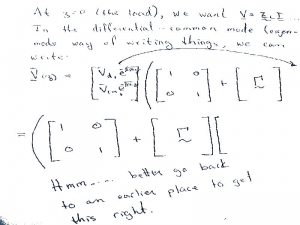 At z=0 (the load), we want V = Z_L I
In the differential-common mode (eigen-
mode way of writing things, we can
write
V(z) = [ ] ( [ 1 0
0 1 ] + [ Γ ] )
= ( [ 1 0
0 1 ] + [ Γ ] [
Hmm.... better go back
to an earlier place to get
this right.